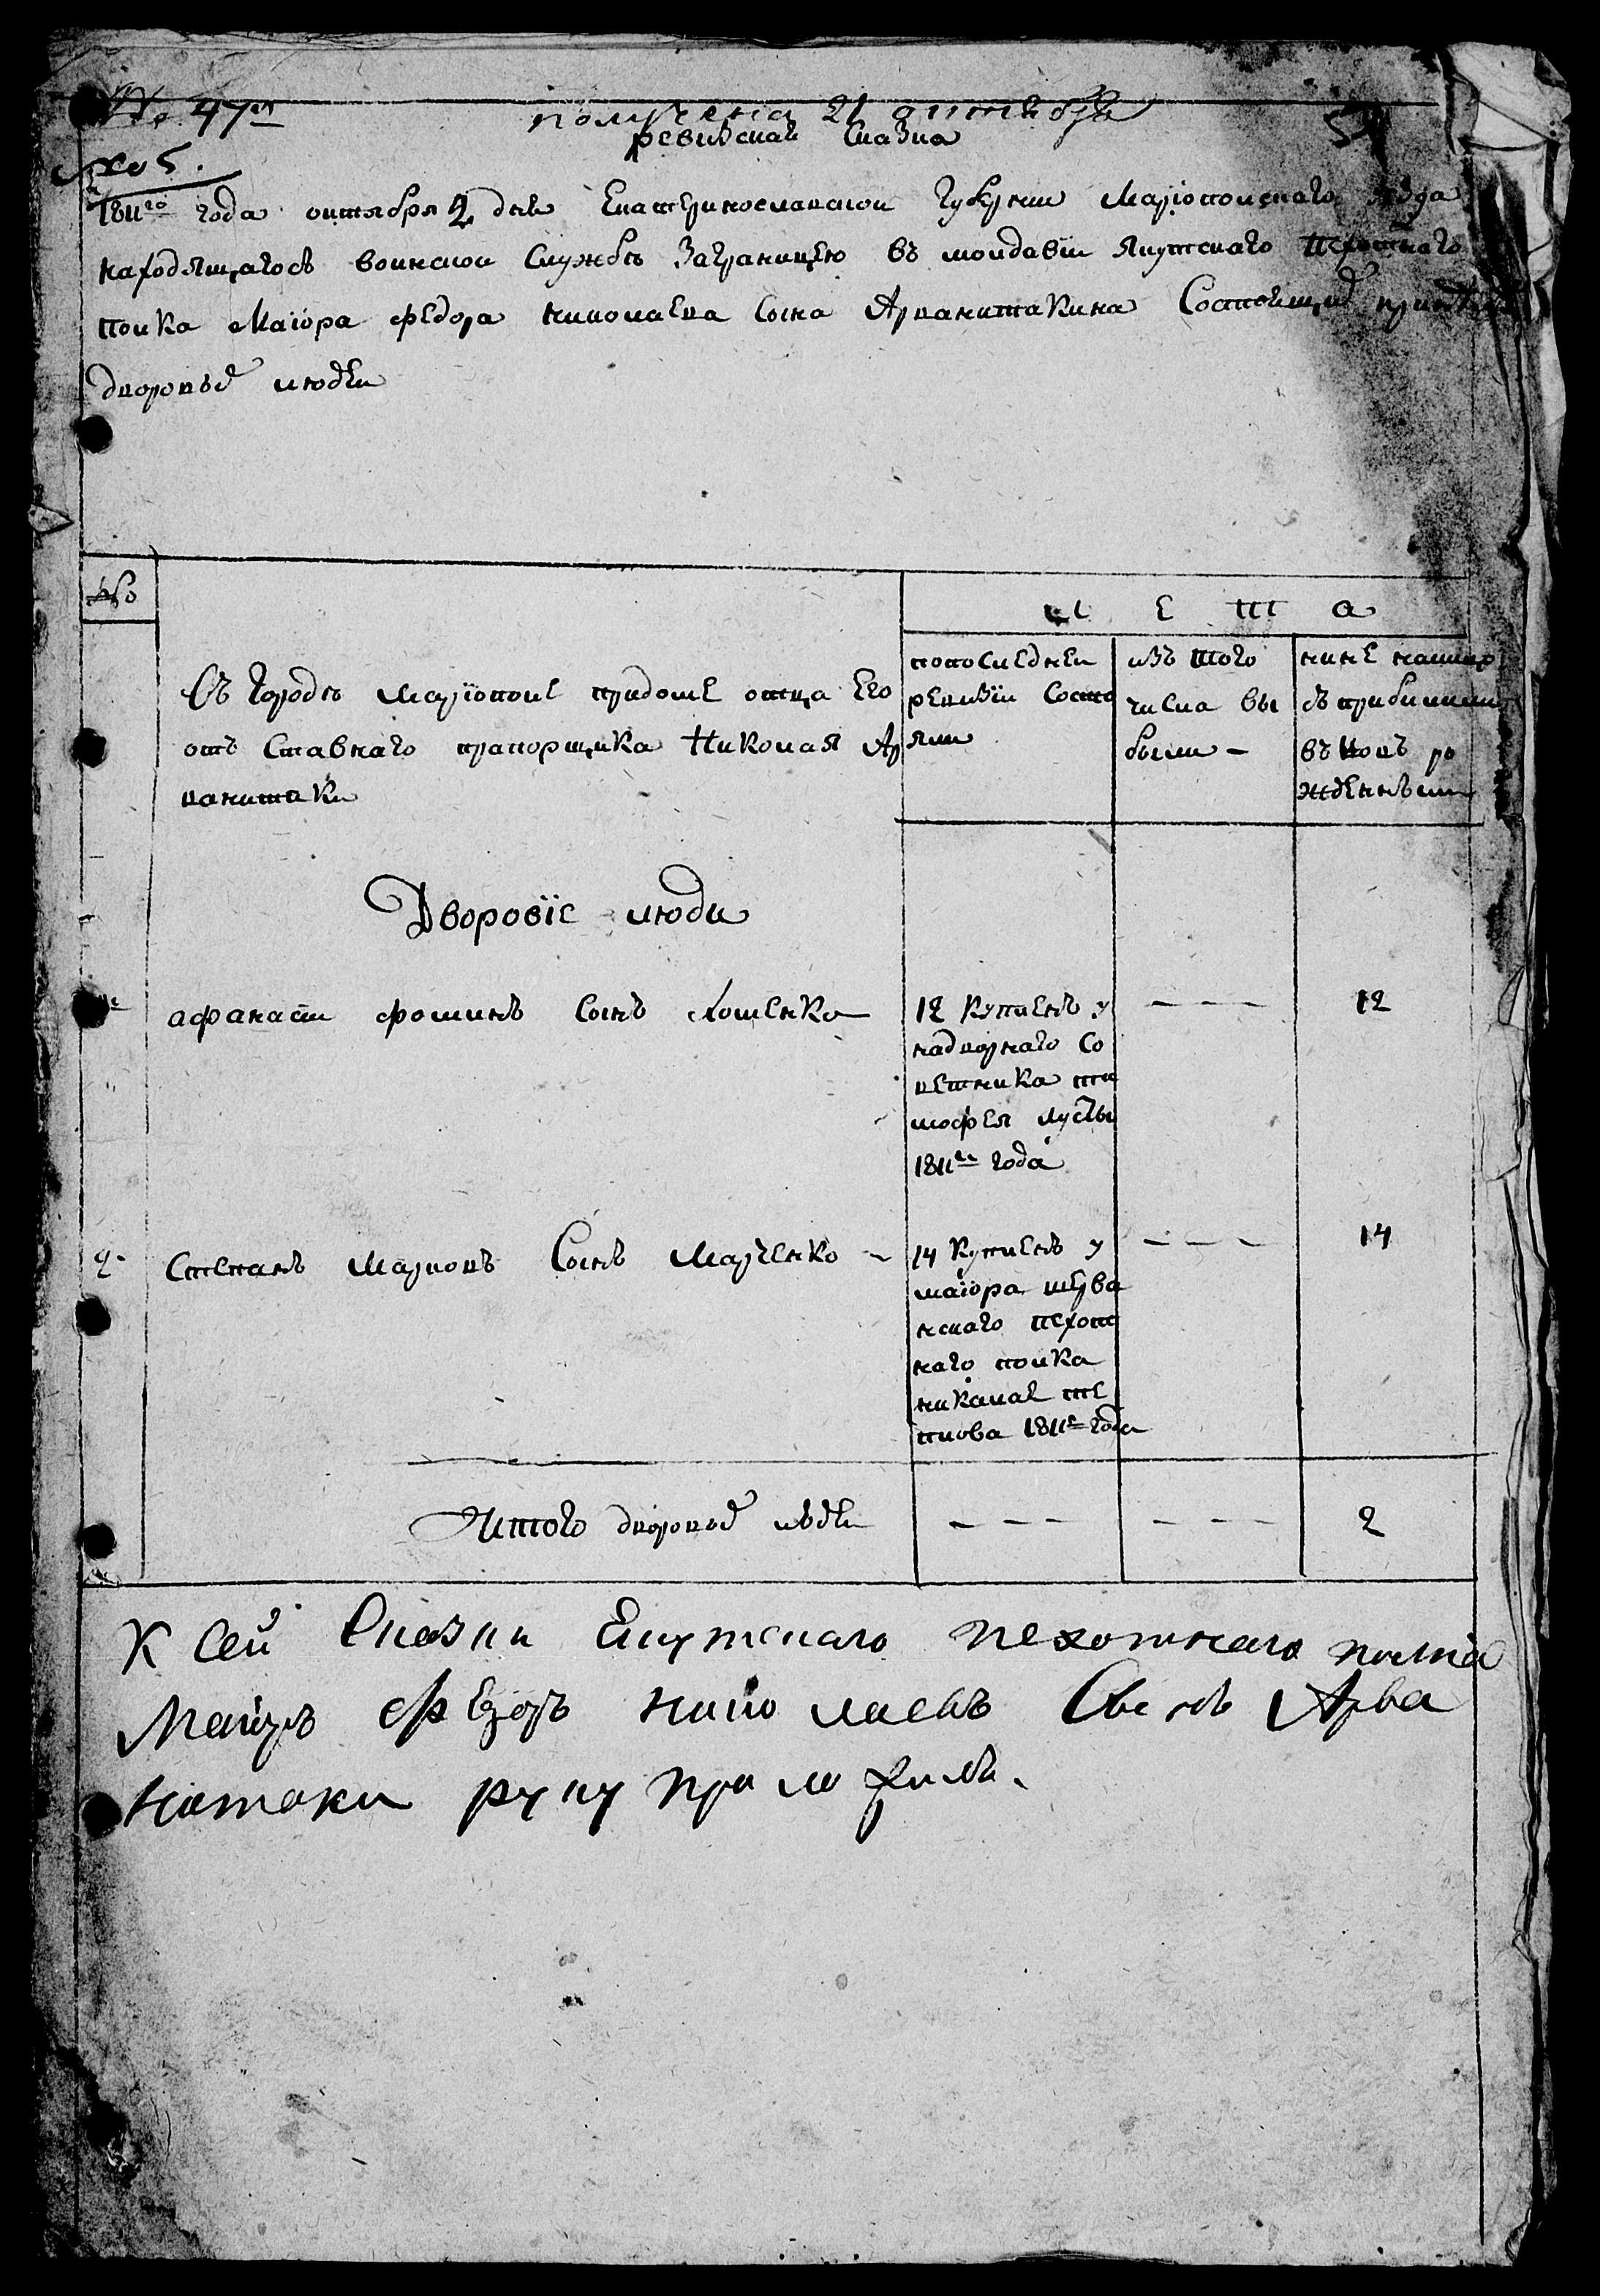 № 47й
получена 21 октября
ревизская сказка
№ 5.
1811го года октября 2 дня Екатеринославской губернии Мариопольскаго уезда
находящагося воинской службе заграницею въ молдавіи якутскаго пехотнаго
полка Маіора Федора николаева сына Арванитакина состоящихъ
дворовыхъ людей
№
л е т а
Въ городе мариополе придоме отца его
отъ ставного прапорщика Николая Ар
ванитаки
попоследней
ревизіи состо
яли
изъ того
числа вы
были –
ныне налицо
съ прибылыми
въ новъ ро
жденными
Дворовіе люди
афанасій фоминъ сынъ хоменко
12 купленъ у
надворнаго со
ветника ти
мофея лусты
1811го года
– – –
12
2. степанъ марковъ сынъ марченко –
14 купленъ у
маіора
нскаго пехот
наго полка
никалая те
плова 1811го года
– – –
14
Итого дворовыхъ людей
– – –
– – –
2
К сей сказки Якутскаго пехотнаго полка
Маіоръ Федоръ николаевъ сынъ Арва
нитаки руку приложилъ.